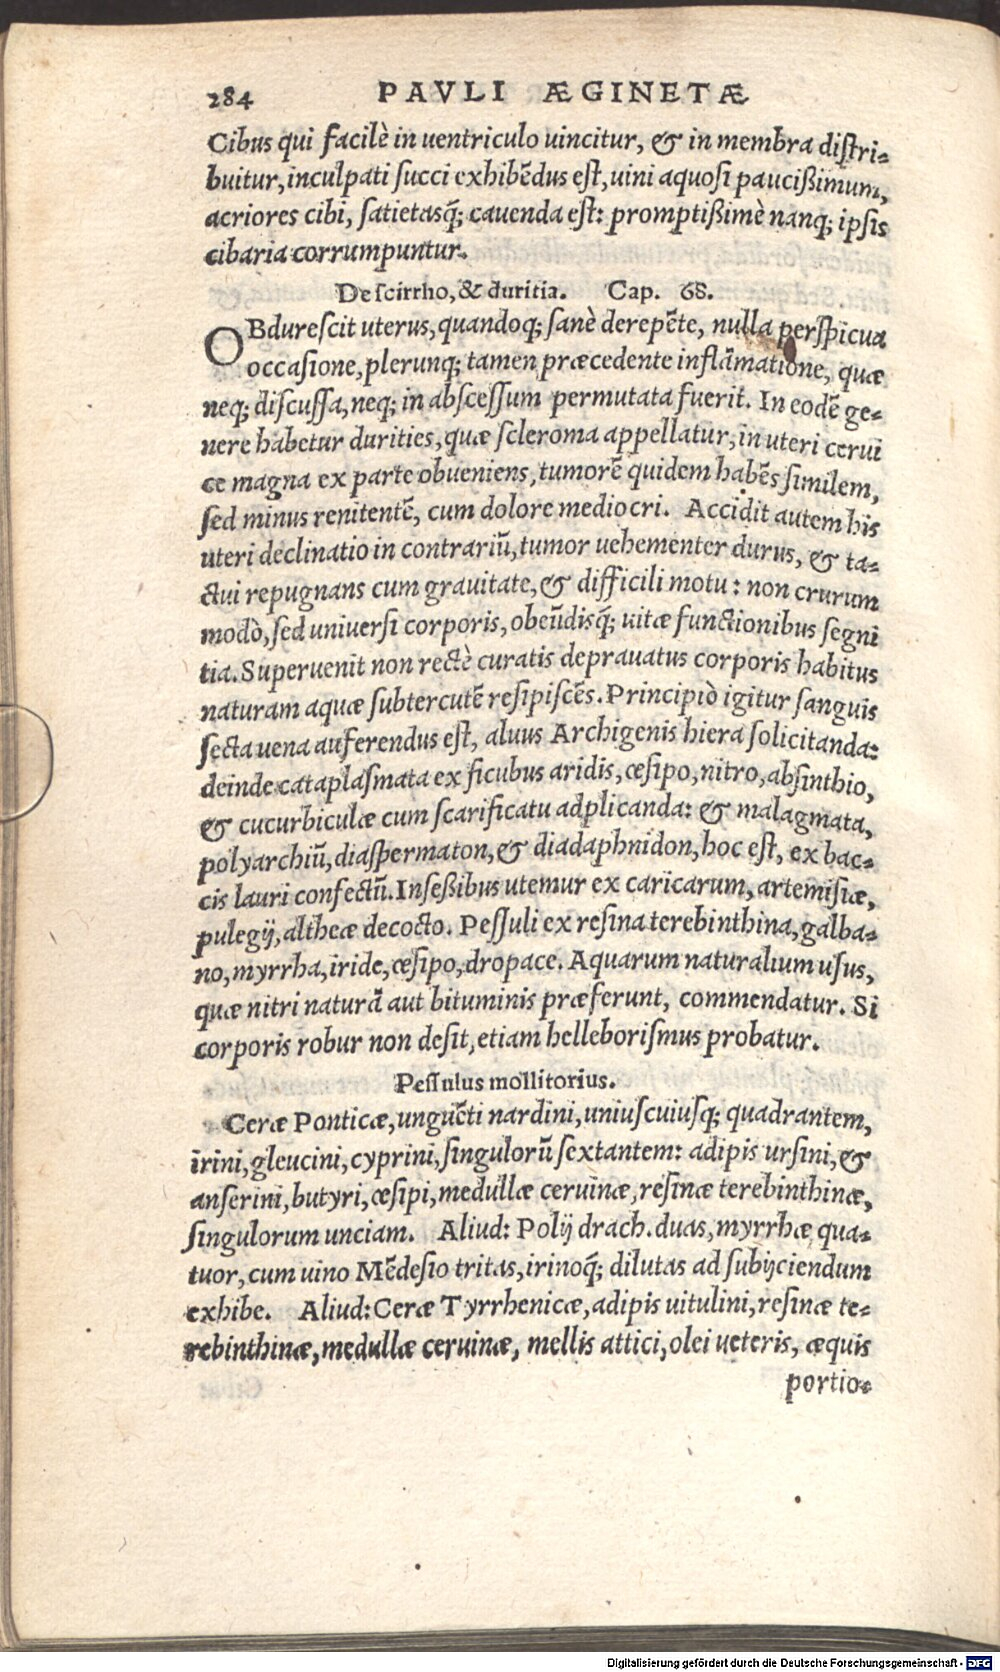 284 PAVLI ÆGINETÆ
Cibus qui facilè in uentriculo uincitur, & in membra distri-
buitur, inculpati succi exhibēdus est, uini aquosi paucißimum,
acriores cibi, satietasq́; cauenda est: promptißimè nanq; ipsis
cibaria corrumpuntur.
De scirrho, & duritia. Cap. 68.
OBdurescit uterus, quandoq; sanè derepēte, nulla perspicua
occasione, plerunq; tamen præcedente inflāmatione, quæ
neq; discussa, neq; in abscessum permutata fuerit. In eodē ge-
nere habetur durities, quæ scleroma appellatur, in uteri cerui
ce magna ex parte obueniens, tumorē quidem habēs similem,
sed minus renitentē, cum dolore mediocri. Accidit autem his
uteri declinatio in contrariū, tumor uehementer durus, & ta-
ctui repugnans cum grauitate, & difficili motu: non crurum
modò, sed uniuersi corporis, obeūdisq́; uitæ functionibus segni
tia. Superuenit non rectè curatis deprauatus corporis habitus
naturam aquæ subtercutē resipiscēs. Principiò igitur sanguis
secta uena auferendus est, aluus Archigenis hiera solicitanda:
deinde cataplasmata ex ficubus aridis, œsipo, nitro, absinthio,
& cucurbiculæ cum scarificatu adplicanda: & malagmata,
polyarchiū, diaspermaton, & diadaphnidon, hoc est, ex bac-
cis lauri confectū. Inseßibus utemur ex caricarum, artemisiæ,
pulegij, altheæ decocto. Pessuli ex resina terebinthina, galba-
no, myrrha, iride, œsipo, dropace. Aquarum naturalium usus,
quæ nitri naturā aut bituminis præferunt, commendatur. Si
corporis robur non desit, etiam helleborismus probatur.
Pessulus mollitorius.
Ceræ Ponticæ, unguēti nardini, uniuscuiusq; quadrantem,
irini, gleucini, cyprini, singulorū sextantem: adipis ursini, &
anserini, butyri, œsipi, medullæ ceruinæ, resinæ terebinthinæ,
singulorum unciam. Aliud: Polij drach. duas, myrrhæ qua-
tuor, cum uino Mēdesio tritas, irinoq́; dilutas ad subijciendum
exhibe. Aliud: Ceræ Tyrrhenicæ, adipis uitulini, resinæ te-
rebinthinæ, medullæ ceruinæ, mellis attici, olei ueteris, æquis
portio-
Digitalisierung gefördert durch die Deutsche Forschungsgemeinschaft - DFG